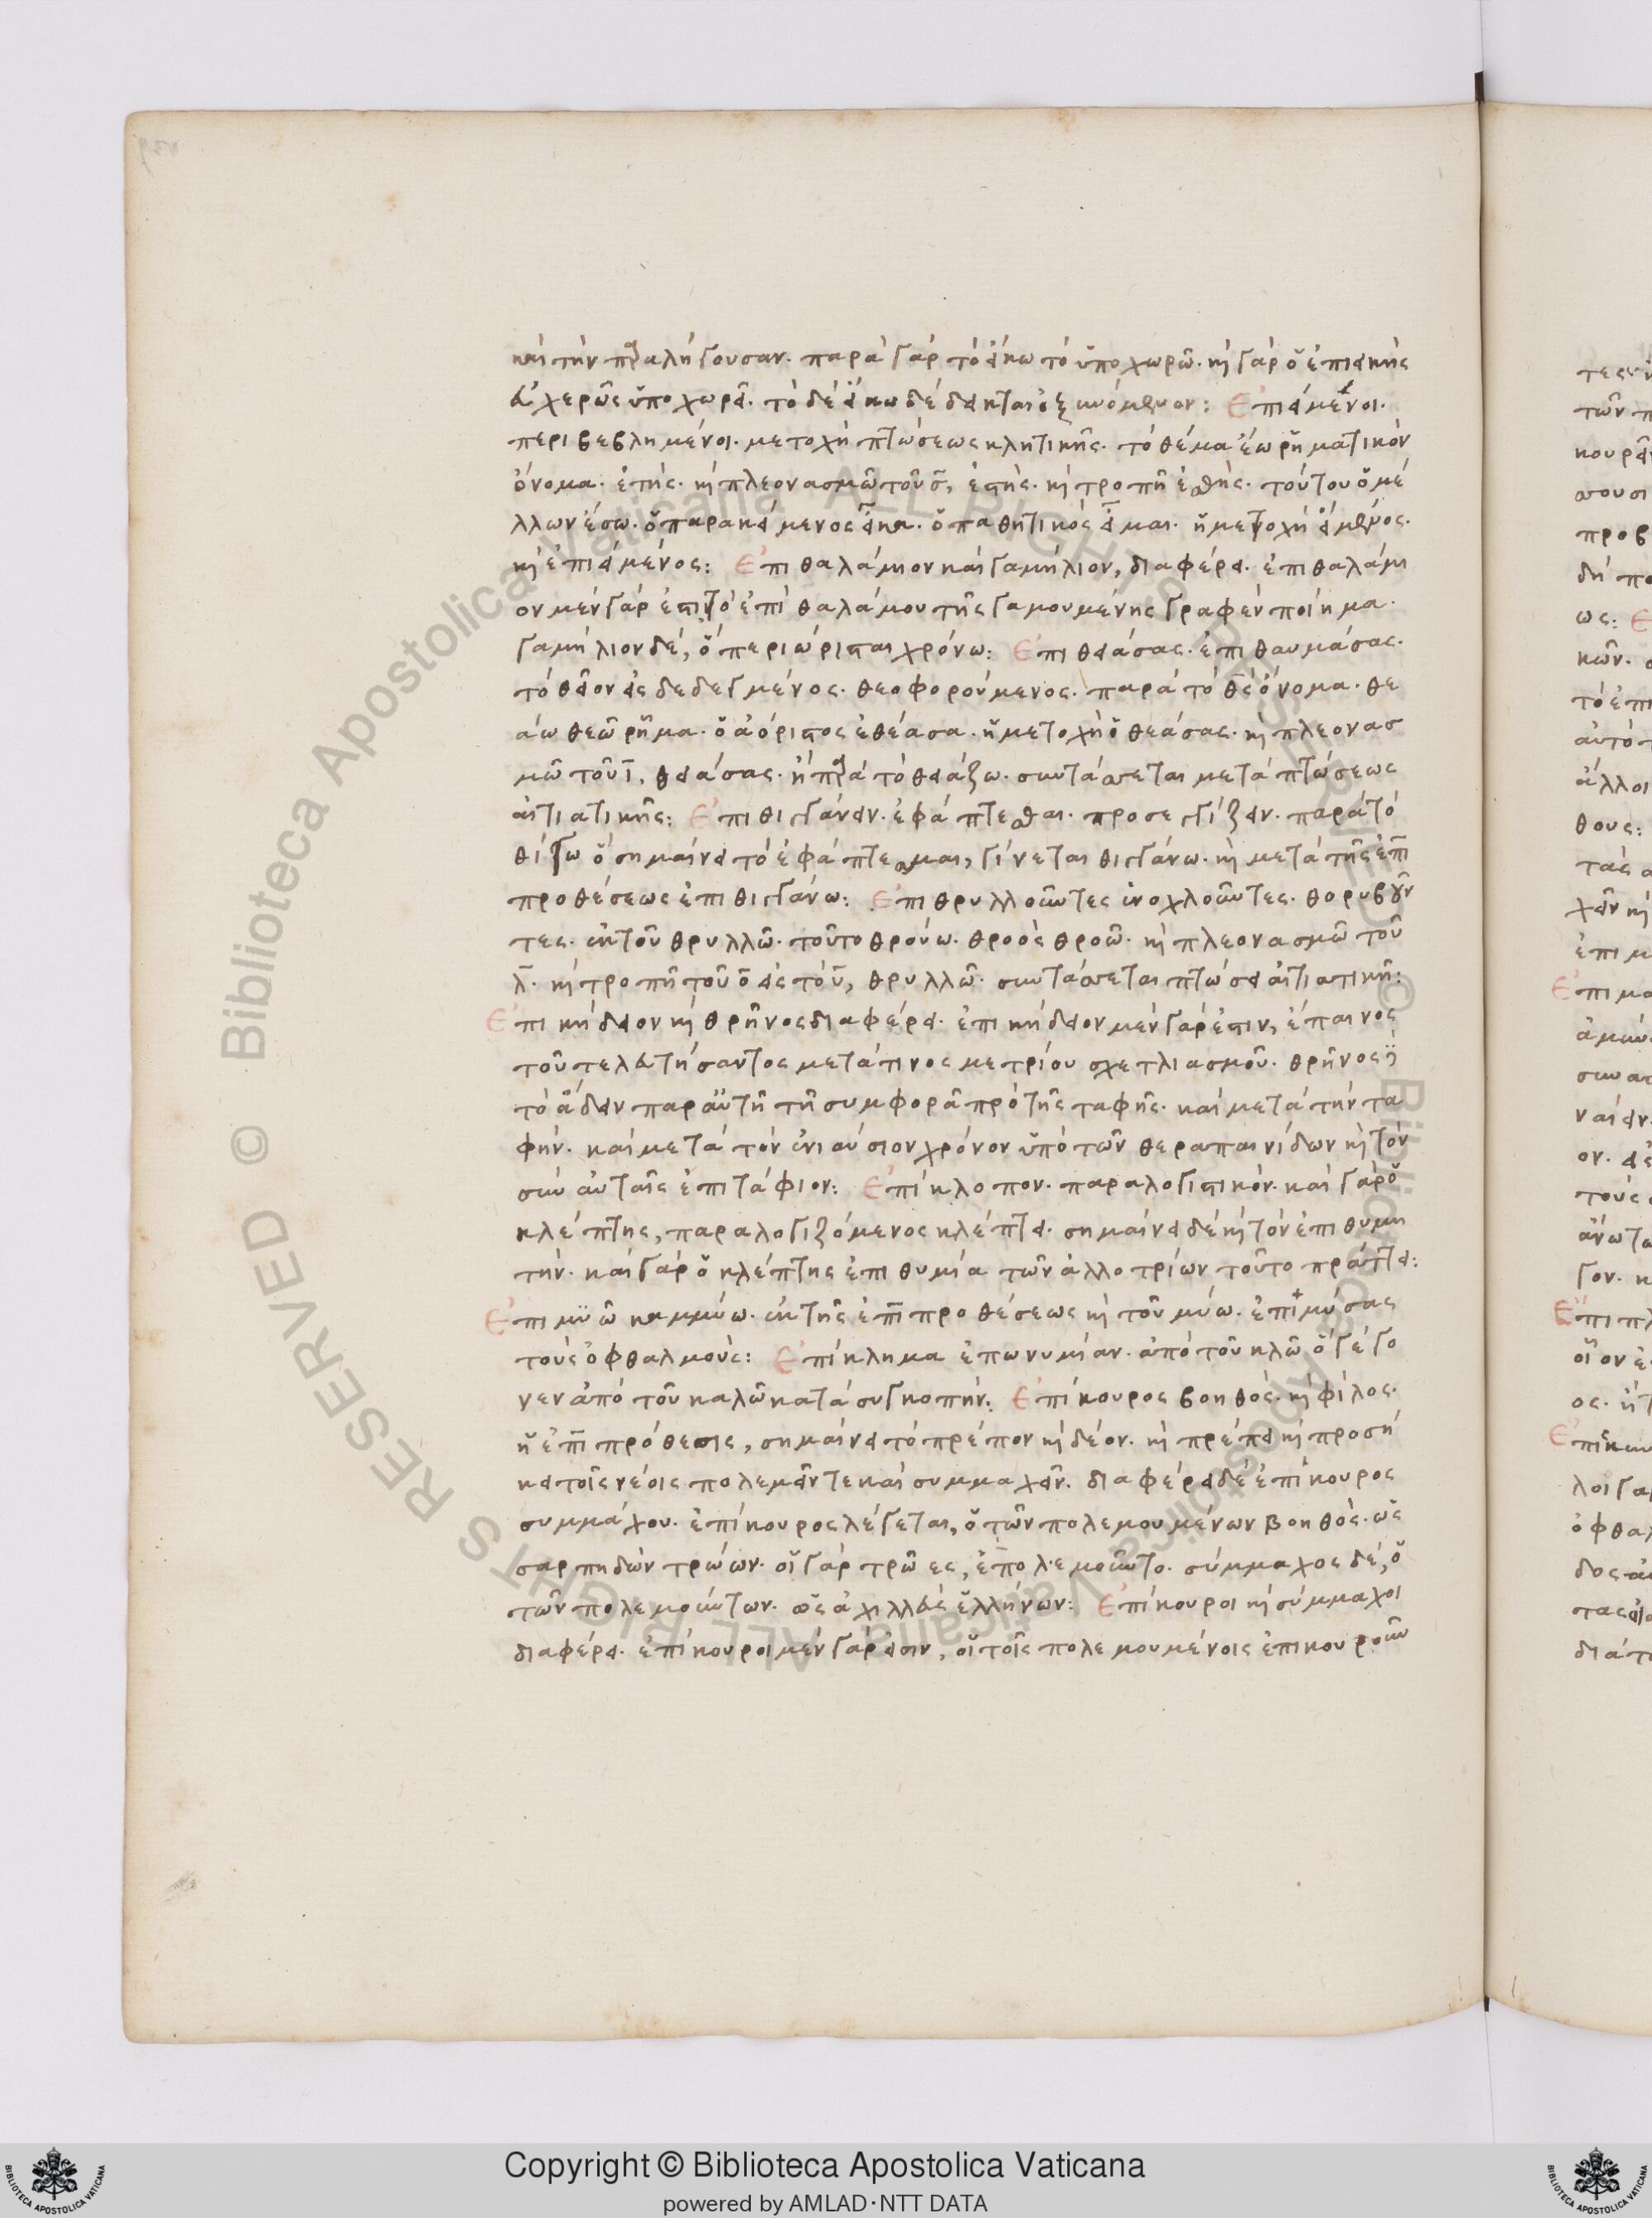 καὶ τὴν παραλήγουσαν. παρὰ γὰρ τὸ εἴκω τὸ ὑποχωρῶ. καὶ γὰρ ὁ ἐπιεικὴς
εὐχερῶς ὑποχωρεῖ. τὸ δὲ εἴκω δὲ δείκνυται ὀξυνόμενον: Ἐπιειμένοι.
περιβεβλημένοι. μετοχὴ πτώσεως κλητικῆς. τὸ θέμα ἕω ῥηματικὸν
ὄνομα. ἑτής. καὶ πλεονασμῶ τοῦ σ, ἑστής. καὶ τροπῆ ἐσθής. τούτου ὁ μέ
λλων ἔσω. ὁ παρακείμενος εἶκα. ὁ παθητικὸς εἷμαι. ἡ μετοχὴ εἱμένος.
καὶ ἐπιειμένος: Ἐπιθαλάμιον καὶ γαμήλιον, διαφέρει. ἐπιθαλάμι
ον μὲν γάρ ἐστι τὸ ἐπὶ θαλάμου τῆς γαμουμένης γραφὲν ποίημα.
γαμήλιον δέ, ὃ περιώρισται χρόνω: Ἐπιθειάσας. ἐπιθαυμάσας.
τὸ θεῖον εἰσδεδεγμένος. θεοφορούμενος. παρὰ τὸ θεὸς ὄνομα. θε
άω θεῶ ῥῆμα. ὁ ἀόριστος ἐθέασα. ἡ μετοχὴ ὁ θεάσας. καὶ πλεονασ
μῶ τοῦ ι, θειάσας. ἢ παρὰ τὸ θειάζω. συντάσσεται μετὰ πτώσεως
αἰτιατικῆς: Ἐπιθιγγάνειν. ἐφάπτεσθαι. προσεγγίζειν. παρὰ τὸ
θίγω ὃ σημαίνει τὸ ἐφάπτεσμαι, γίνεται θιγγάνω. καὶ μετὰ τῆς ἐπὶ
προθέσεως ἐπιθιγγάνω: Ἐπιθρυλλοῦντες ἐνοχλοῦντες. θορυβοῦν
τες. ἐκ τοῦ θρυλλῶ. τοῦτο θρούω. θροὸς θροῶ. καὶ πλεονασμῶ τοῦ
λ. καὶ τροπῆ τοῦ ο εἰς τὸ υ, θρυλλῶ. συντάσσεται πτώσει αἰτιατικῆ:
Ἐπικήδειον καὶ θρῆνος διαφέρει. ἐπικήδειον μὲν γάρ ἐστιν, ἔπαινος
τοῦ τελευτήσαντος μετά τινος μετρίου σχετλιασμοῦ. θρῆνος
τὸ ἄδειν παρ αὐτῆ τῆ συμφορᾶ πρὸ τῆς ταφῆς. καὶ μετὰ τὴν τα
φήν. καὶ μετὰ τὸν ἐνιαύσιον χρόνον ὑπὸ τῶν θεραπαινίδων καὶ τὸν
σὺν αὐταῖς ἐπιτάφιον: Ἐπίκλοπον. παραλογιστικόν. καὶ γὰρ ὁ
κλέπτης, παραλογιζόμενος κλέπτει. σημαίνει δὲ καὶ τὸν ἐπιθυμη
τήν. καὶ γὰρ ὁ κλέπτης ἐπιθυμία τῶν ἀλλοτρίων τοῦτο πράττει:
Ἐπιμύω καμμύω. ἐκ τῆς ἐπὶ προθέσεως καὶ τοῦ μύω. ἐπιμύσας
τοὺς ὀφθαλμούς: Ἐπίκλημα ἐπωνυμίαν. ἀπὸ τοῦ κλῶ ὃ γέγο
νεν ἀπὸ τοῦ καλῶ κατὰ συγκοπήν: Ἐπίκουρος βοηθός. καὶ φίλος.
ἡ ἐπὶ πρόθεσις, σημαίνει τὸ πρέπον καὶ δέον. καὶ πρέπει καὶ προσή
κει τοῖς νέοις πολεμεῖν τε καὶ συμμαχεῖν. διαφέρει δὲ ἐπίκουρος
συμμάχου. ἐπίκουρος λέγεται, ὁ τῶν πολεμουμένων βοηθός. ὡς
σαρπηδὼν τρώων. οἱ γὰρ τρῶες, ἐπολεμοῦντο. σύμμαχος δέ, ὁ
τῶν πολεμούντων. ὡς ἀχιλλεὺς ἑλλήνων: Ἐπίκουροι καὶ σύμμαχοι
διαφέρει. ἐπίκουροι μὲν γάρ εἰσιν, οἱ τοῖς πολεμουμένοις ἐπικουροῦν
Copyright © Biblioteca Apostolica Vaticana
powered by AMLAD·NTT DATA